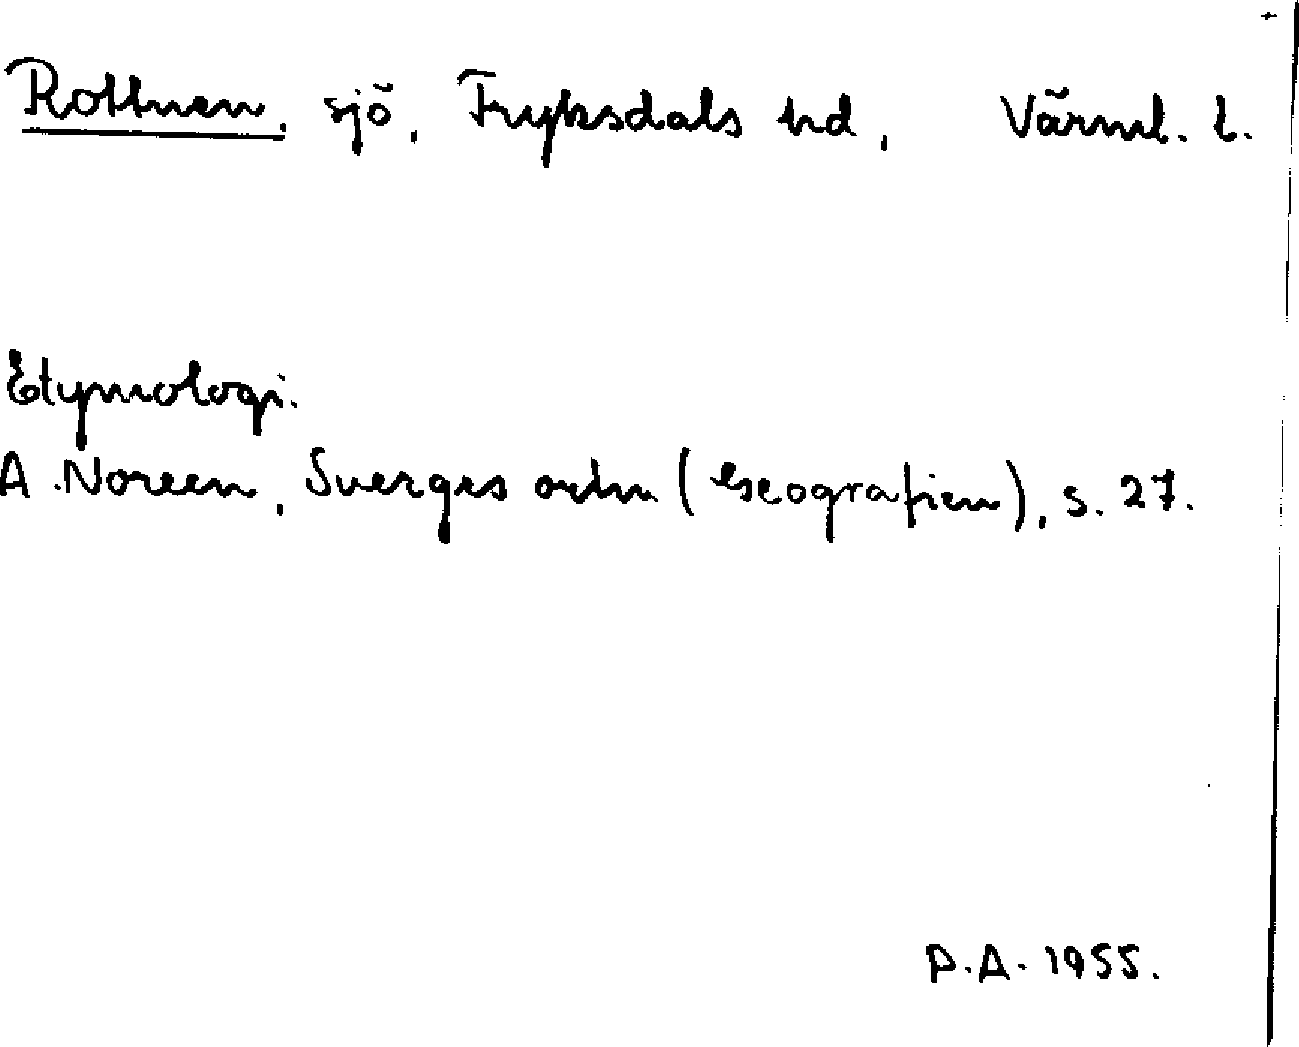 Rottnen, sjö, Fryksdals hd, Värml. l.
Etymologi.
A. Noreen, Sverges ortn (Geografien), s. 27.
P.A. 1955.